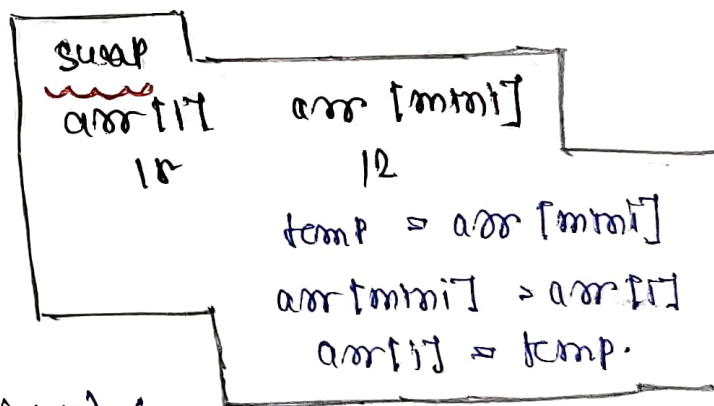 swap
arr[i] arr [mini]
15 12
temp = arr [mini]
arr [mini] = arr [i]
arr[i] = temp.